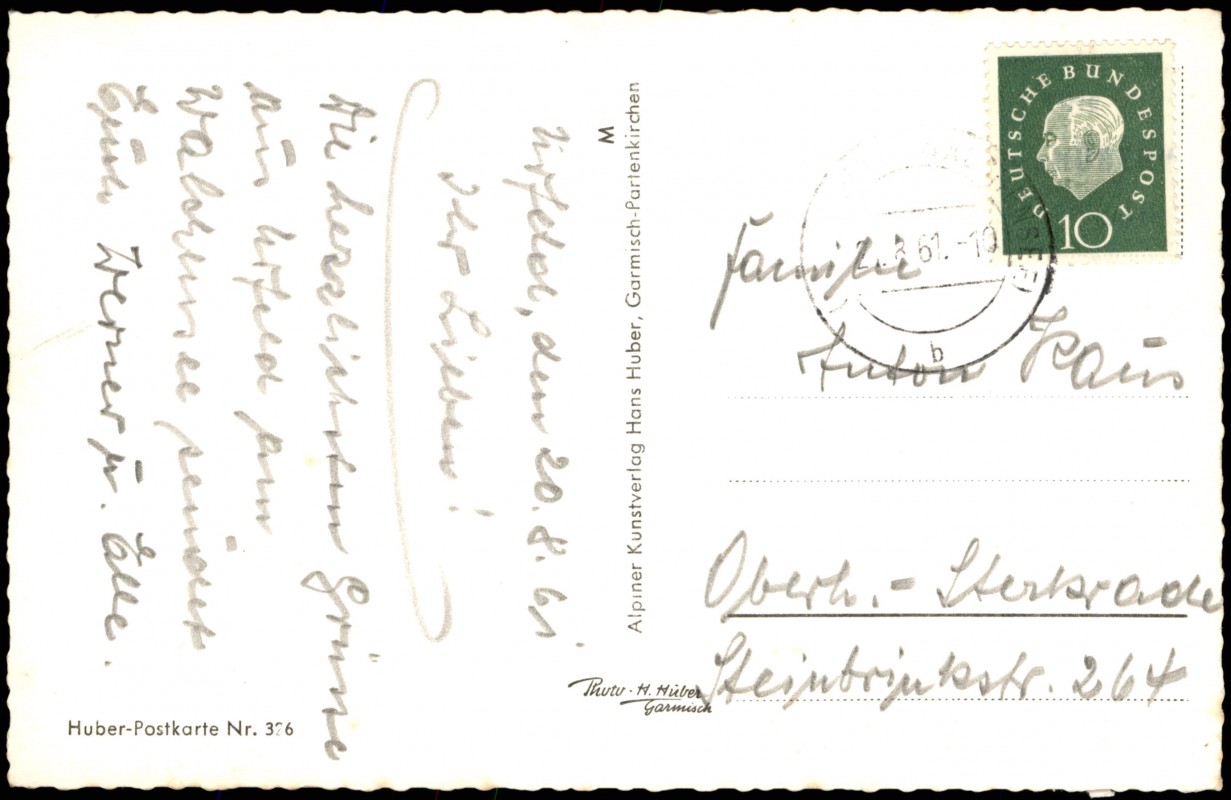 Urfeld, den 20.8.61
Ihr Lieben!
Die herzlichsten Grüße
aus Urfeld am
Walchensee sendet
Euch Werner u. Elle.
M
Alpiner Kunstverlag Hans Huber, Garmisch-Partenkirchen
Huber-Postkarte Nr. 326
Photo - H. Huber
Garmisch
DEUTSCHE BUNDESPOST
10
8.61.-10
b
Familie
Anton Kaus
Oberh.- Sterkrade
Steinbrinkstr. 264